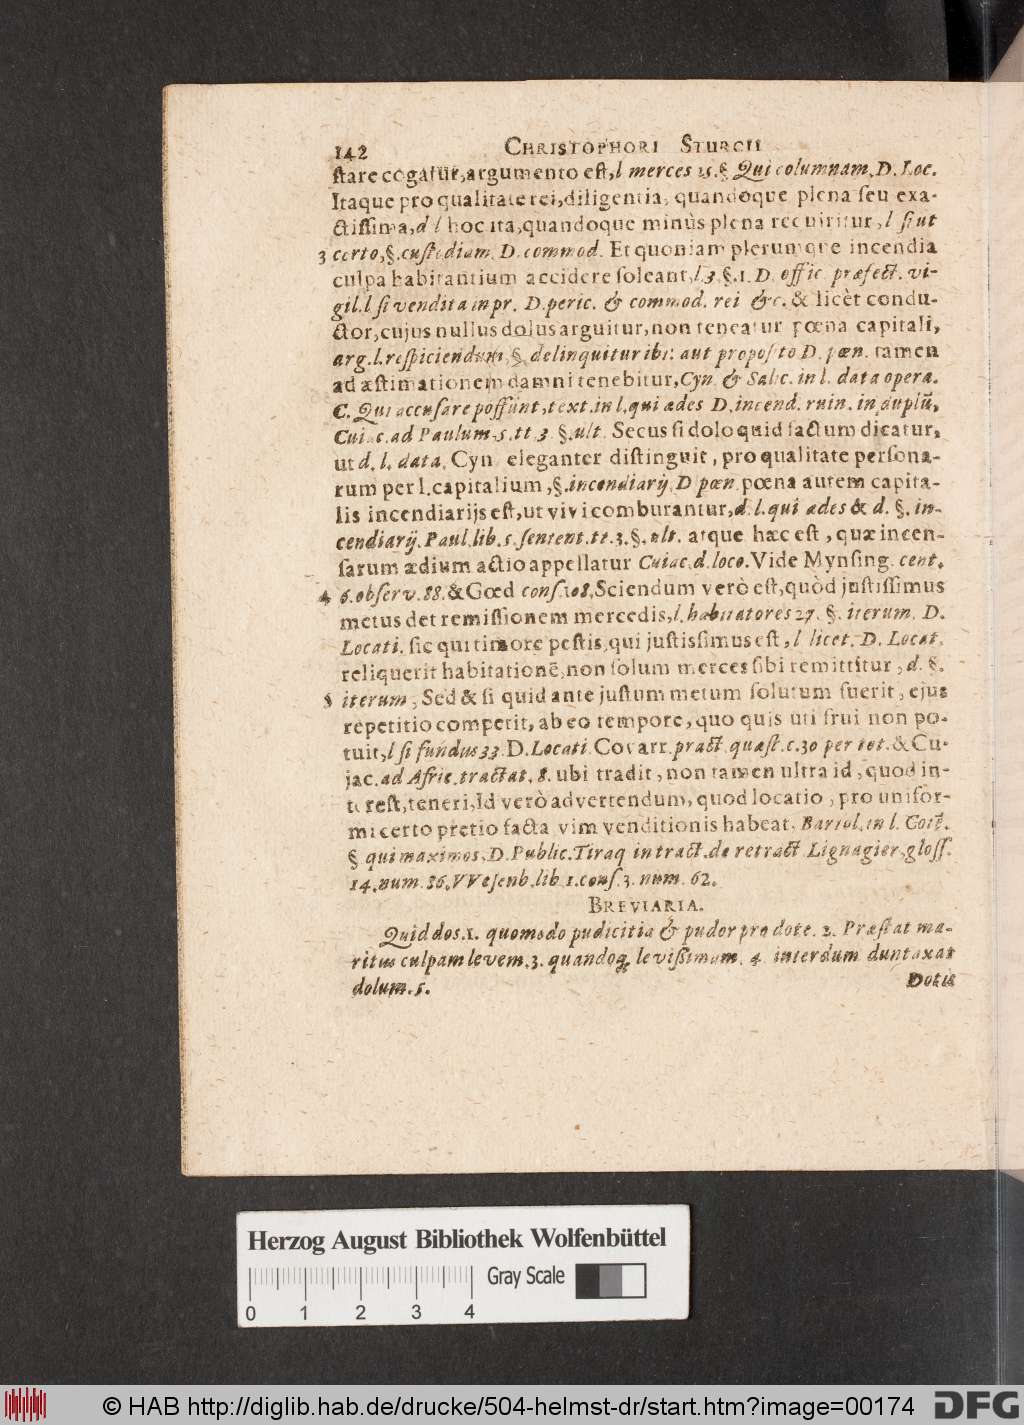 142 CHRISTOPHORI STURCII
ſtare cogatur, argumento eſt, l merces 15. §. Qui columnam. D. Loc.
Itaque pro qualitate rei, diligentia, quandoque plena ſeu exa-
ctiſſima, d l hoc ita, quandoque minùs plena requiritur, l ſi ut
3 certo, §. cuſtodiam. D. commod. Et quoniam plerumque incendia
culpa habitantium accidere ſoleant, l. 3. §. 1. D. offic. præfect. vi-
gil. l ſi vendita in pr. D. peric. & commod. rei &c. & licèt condu-
ctor, cujus nullus dolus arguitur, non teneatur pœna capitali,
arg. l. reſpiciendum, §. delinquitur ibi: aut propoſito D. pœn. tamen
ad æſtimationem damni tenebitur, Cyn. & Salic. in l. data opera.
C. Qui accuſare poſſunt, text. in l. qui ædes D. incend. ruin. in duplū,
Cuiac. ad Paulum. 5. tt. 3. §. ult. Secus ſi dolo quid factum dicatur,
ut d. l. data. Cyn eleganter diſtinguit, pro qualitate perſona-
rum per l. capitalium, §. incendiarij. D pœn. pœna autem capita-
lis incendiarijs eſt, ut vivi comburantur, d. l. qui ædes & d. §. in-
cendiarij. Paul. lib. 5. ſentent. tt. 3. §. ult. atque hæc eſt, quæ incen-
ſarum ædium actio appellatur Cuiac. d. loco. Vide Mynſing. cent.
4 6. obſerv. 88. & Gœd conſ. 108. Sciendum verò eſt, quòd juſtiſſimus
metus det remiſſionem mercedis, l. habitatores 27. §. iterum. D.
Locati. ſic qui timore peſtis, qui juſtisſimus eſt, l licet. D. Locat.
reliquerit habitationē, non ſolum merces ſibi remittitur, d. §.
5 iterum, Sed & ſi quid ante juſtum metum ſolutum fuerit, ejus
repetitio competit, ab eo tempore, quo quis uti frui non po-
tuit, l ſi fundus 33. D. Locati. Covarr. pract. quæſt. c. 30 per tot. & Cu-
jac. ad Afric. tractat. 8. ubi tradit, non tamen ultra id, quod in-
tereſt, teneri, Id verò advertendum, quod locatio, pro unifor-
mi certo pretio facta vim venditionis habeat. Bartol. in l. Cotē.
§ qui maximos. D. Public. Tiraq in tract. de retract. Lignagier. gloſſ.
14. num. 86. VVeſenb. lib 1. conſ. 3. num. 62.
BREVIARIA.
Quid dos. 1. quomodo pudicitia & pudor pro dote. 2. Præſtat ma-
ritus culpam levem. 3. quandoq; leviſſimam. 4. interdum duntaxat
dolum. 5.
Dotis
Herzog August Bibliothek Wolfenbüttel
Gray Scale
0 1 2 3 4
© HAB http://diglib.hab.de/drucke/504-helmst-dr/start.htm?image=00174
DFG